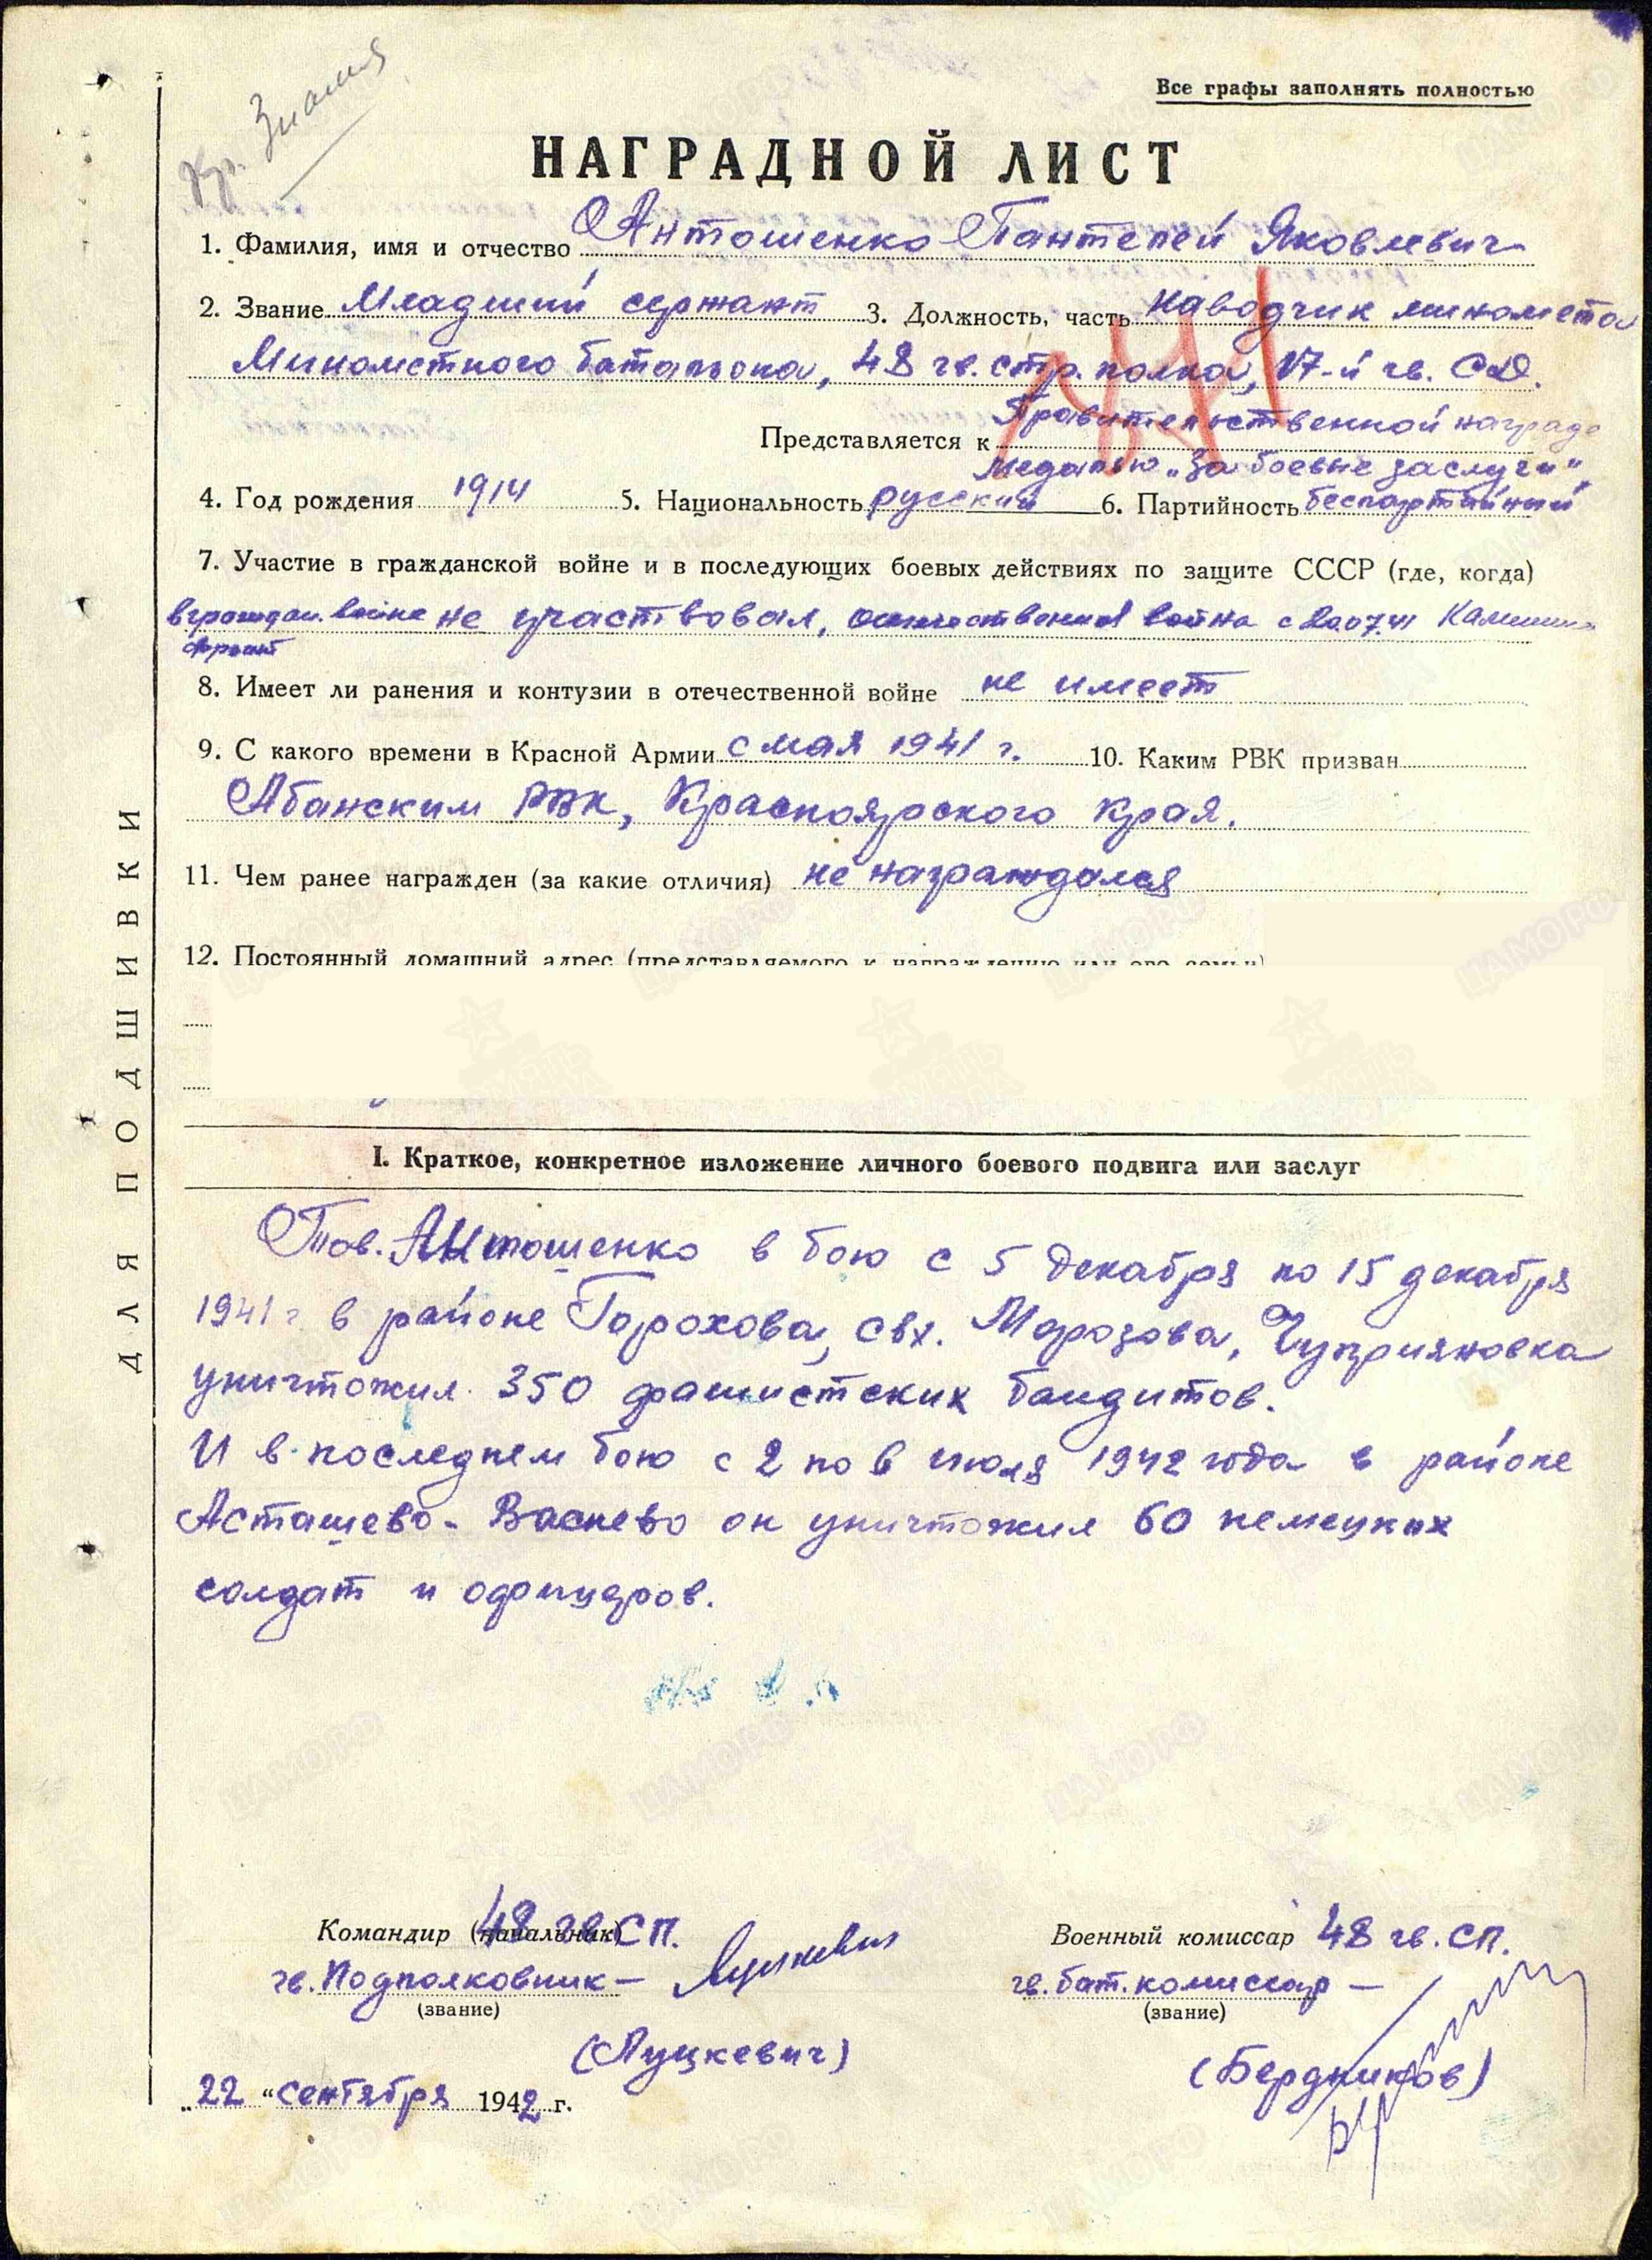 Кр. Знамя
Все графы заполнять полностью
НАГРАДНОЙ ЛИСТ
1. Фамилия, имя и отчество Антошенко Пантелей Яковлевич
2. Звание Младший сержант 3. Должность, часть наводчик миномета
Минометного батальона, 48 гв. стр. полка, 17-й гв. СД.
Представляется к Правительственной награде
медалью „За боевые заслуги“
4. Год рождения 1914 5. Национальность русский 6. Партийность беспартийный
7. Участие в гражданской войне и в последующих боевых действиях по защите СССР (где, когда)
в граждан. войне не участвовал, отечественная война с 20.07.41 Калинин
фронт
8. Имеет ли ранения и контузии в отечественной войне не имеет
9. С какого времени в Красной Армии с мая 1941 г. 10. Каким РВК призван
Абанским РВК, Красноярского края.
11. Чем ранее награжден (за какие отличия) не награждался
12. Постоянный домашний адрес (представляемого к награждению или его семьи)
ДЛЯ ПОДШИВКИ
I. Краткое, конкретное изложение личного боевого подвига или заслуг
Тов. Антошенко в бою с 5 декабря по 15 декабря
1941 г в районе Горохова, свх. Морозова, Чуприяновка
уничтожил 350 фашистских бандитов.
И в последнем бою с 2 по 6 июля 1942 года в районе
Асташево - Васнево он уничтожил 60 немецких
солдат и офицеров.
Командир (начальник) 48 гв. СП. Военный комиссар 48 гв. СП.
гв. Подполковник – гв. бат. комиссар –
(звание) (звание)
(Луцкевич) (Бердников)
„22“ сентября 1942 г.